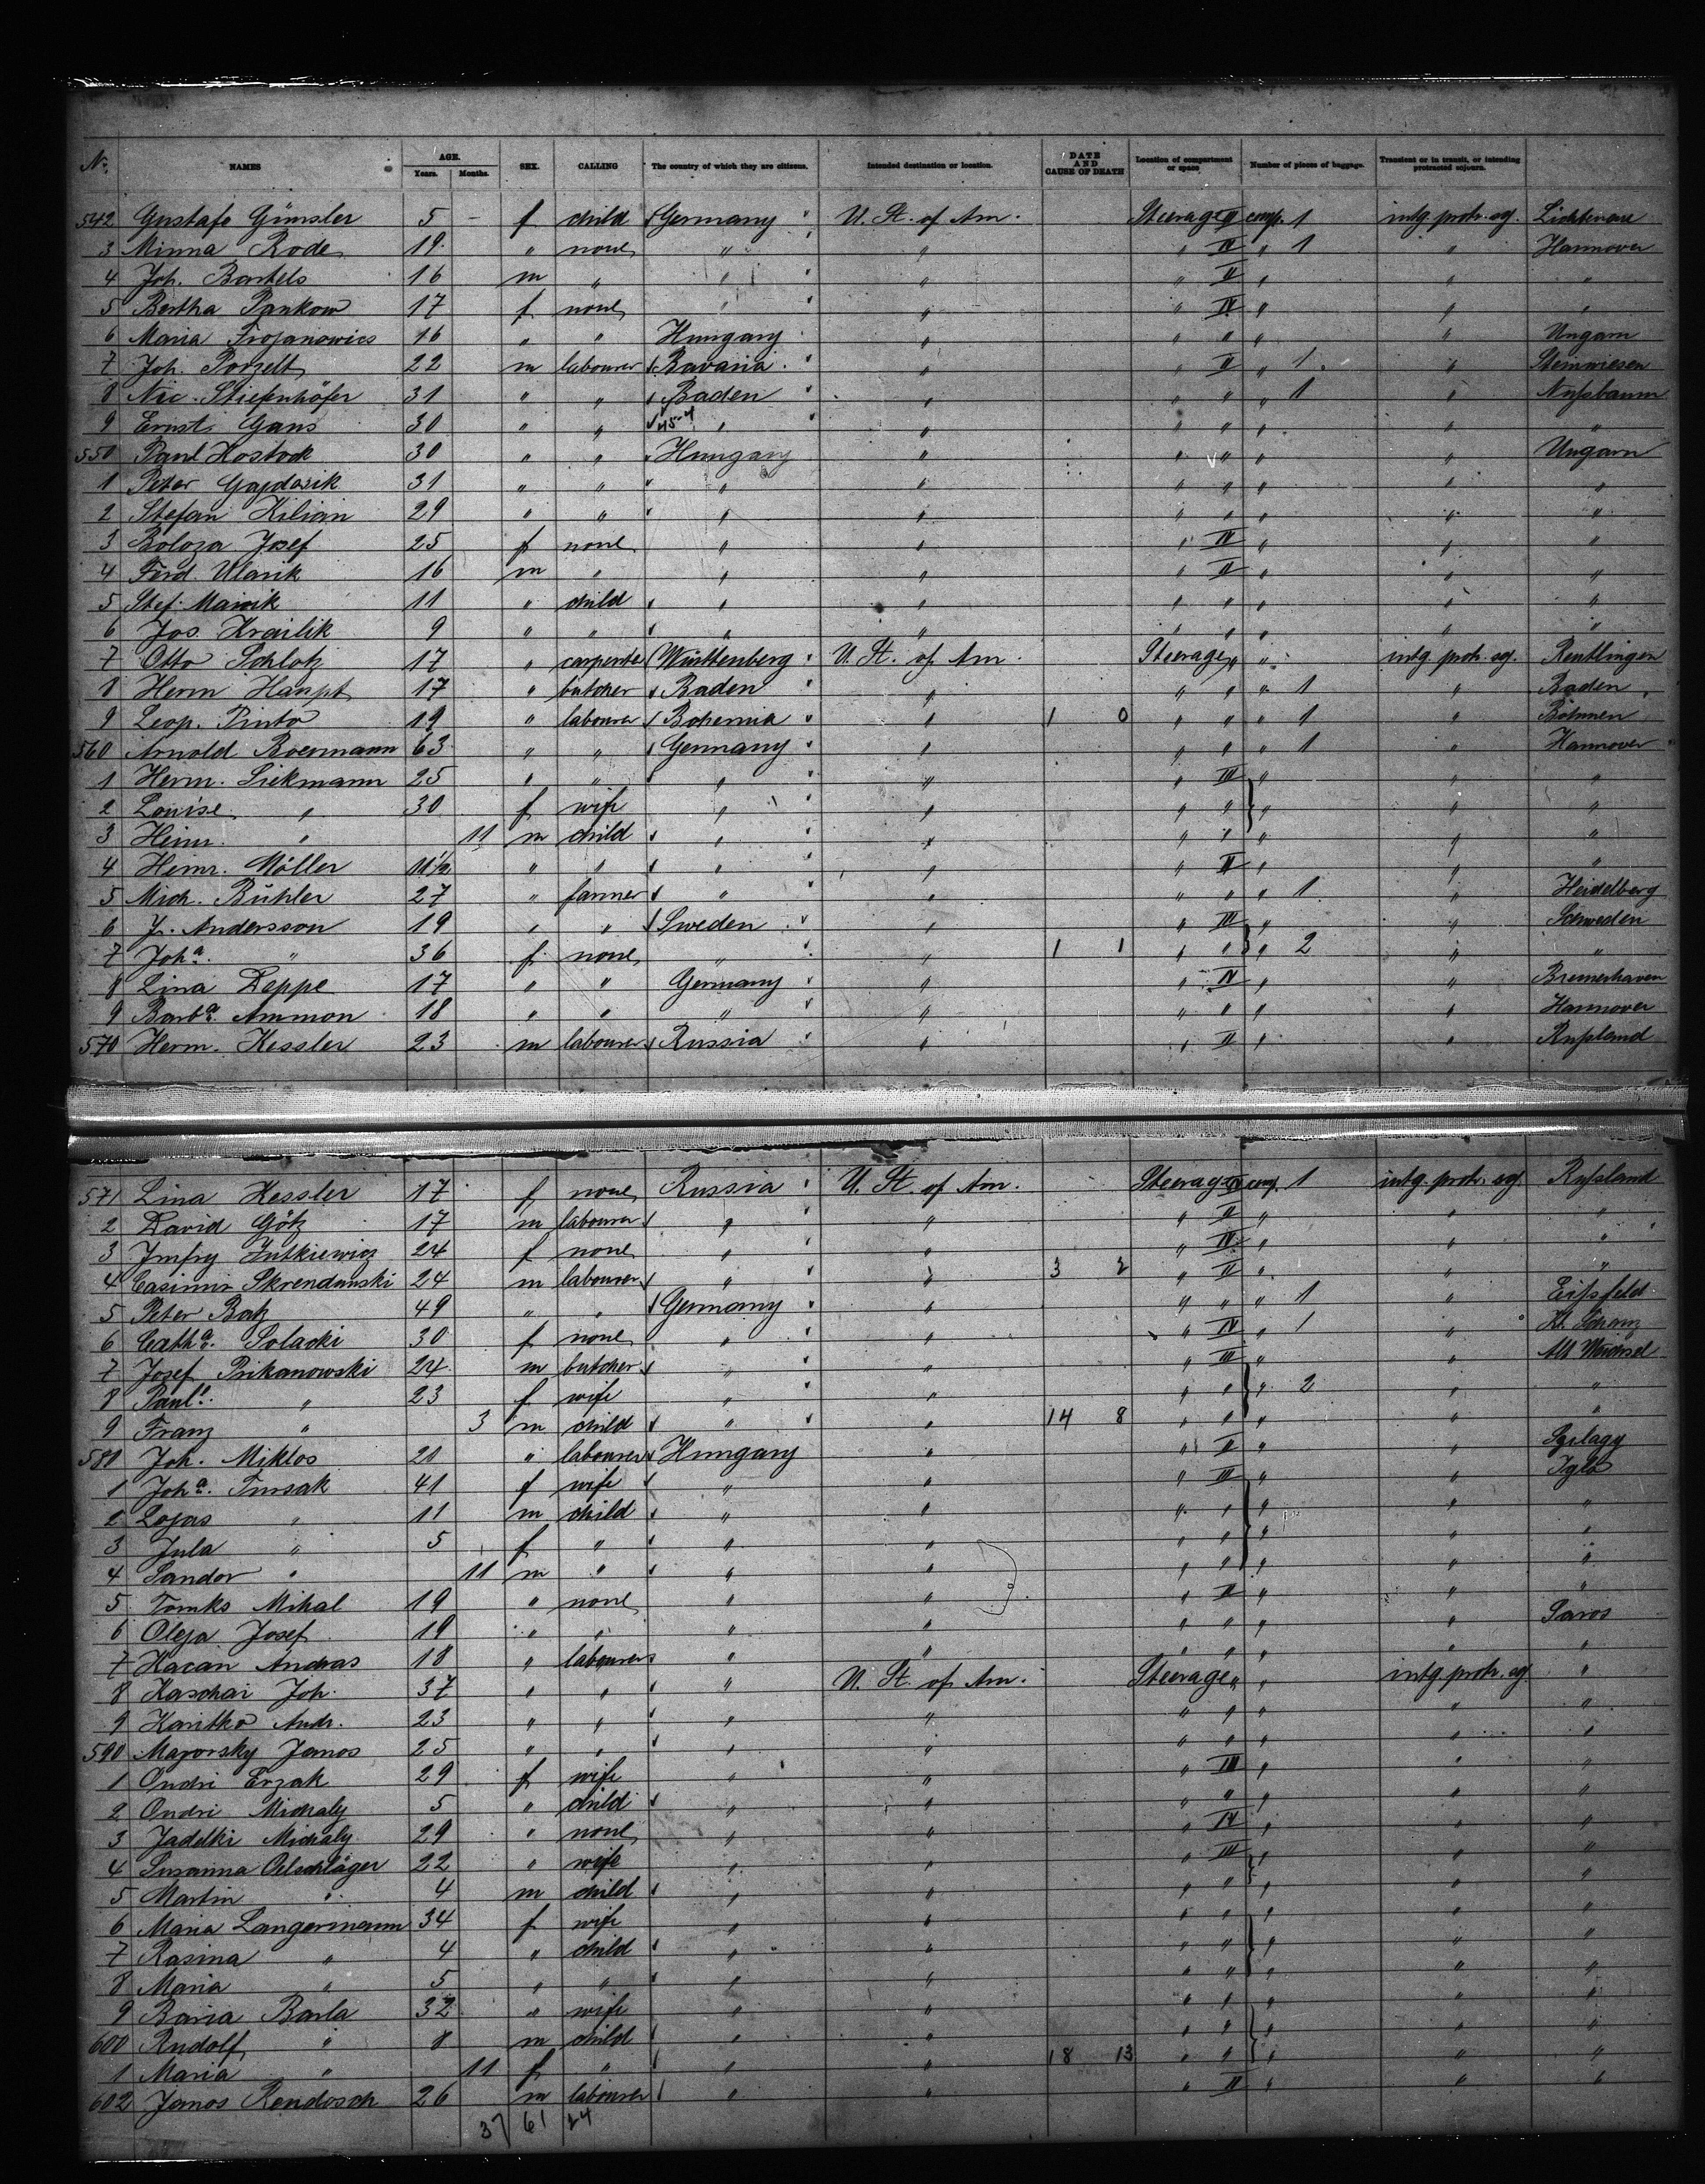 No. NAMES AGE. Years. Months. SEX. CALLING The country of which they are citizens. Intended destination or location. DATE AND CAUSE OF DEATH Location of compartment or space Number of pieces of baggage. Transient or in transit, or intending protracted sojourn.
542 Gustafe Günsler 5 – f child Germany U. St. of Am. Steerage II comp. 1 intg. protr. soj.
3 Minna Rode 19 " none " " " IV " 1 " Hannover
4 Joh. Bartels 16 m " " " " II " " "
5 Bertha Pankow 17 f none " " " IV " " "
6 Maria Trojanowics 16 " " Hungary " " " " " Ungarn
7 Joh. Porzelt 22 m labourer Bavaria " " II " 1 " Steinwiesen
8 Nic. Stiefenhöfer 31 " " Baden " " " " 1 " Nußbaum
9 Ernst Gans 30 " " " " " " " " "
550 Paul Hostock 30 " " Hungary " " " " " Ungarn
1 Peter Gajdosik 31 " " " " " " " " "
2 Stefan Kilian 29 " " " " " " " " "
3 Boloza Josef 25 f none " " " IV " " "
4 Ferd. Ularik 16 m " " " " II " " "
5 Stef. 11 " child " " " " " " "
6 Jos. Krailik 9 " " " " " " " " "
7 Otto Schlotz 17 " carpenter Württenberg U. St. of Am. Steerage " " intg. protr. soj. Reutlingen
8 Herm Haupt 17 " butcher Baden " " " " 1 " Baden
9 Leop. Pinto 19 " labourer Bohemia " 1 0 " " " 1 " Böhmen
560 Arnold Boermann 63 " " Germany " " " " 1 " Hannover
1 Herm. Siekmann 25 " " " " " III " " "
2 Louise " 30 f wife " " " " " " "
3 Heinr. " 11 m child " " " " " " "
4 Heinr. Möller 11½ " " " " " II " " "
5 Mich. Bühler 27 " farmer " " " " " 1 " Heidelberg
6 J. Andersson 19 " " Sweden " " III " " Schweden
7 Joha. " 36 f none " " 1 1 " " " 2 " "
8 Lina Deppe 17 " " Germany " " IV " " Bremerhaven
9 Barba. Ammon 18 " " " " " " " " Hannover
570 Herm. Kessler 23 m labourer Russia " " II " " Rußland
571 Lina Kessler 17 f none Russia U. St. of Am. Steerage IV comp. 1 intg. protr. soj. Rußland
2 David Götz 17 m labourer " " " II " " "
3 24 f none " " " IV " " "
4 Casimir 24 m labourer " " 3 2 " II " " "
5 Peter Batz 49 " " Germany " " " " 1 " Eißfeld
6 Catha. Solacki 30 f none " " " IV " 1 "
7 Josef Prikanowski 24 m butcher " " " III " "
8 Paule. " 23 f wife " " " " " 2 " "
9 Franz " 3 m child " " 14 8 " " " " "
580 Joh. Miklos 21 " labourer Hungary " " II " " Szilagy
1 Joha. 41 f wife " " " III " " Iglo
2 Lojas " 11 m child " " " " " " "
3 Jula " 5 f " " " " " " " "
4 Sandor " 11 m " " " " " " " "
5 Tomks Mihal 19 " none " " " II " " "
6 Oleja Josef 19 " " " " " " " " Saros
7 Hacan Andras 18 " labourer " " " " " " "
8 Kaschai Joh. 37 " " " U. St. of Am. Steerage " " intg. protr. soj. "
9 Haritko Andr. 23 " " " " " " " " "
590 Majorsky Janos 25 " " " " " " " " "
1 Ondri Erzak 29 f wife " " " III " " "
2 Ondri Michaly 5 " child " " " " " " "
3 Jadelki Michaly 29 " none " " " IV " " "
4 Susanna Oelschläger 22 " wife " " " III " " "
5 Martin " 4 m child " " " " " " "
6 Maria Langermann 34 f wife " " " " " " "
7 Rasina " 4 " child " " " " " " "
8 Maria " 5 " " " " " " " " "
9 Baria Barla 32 " wife " " " " " " "
600 Rudolf " 8 m child " " " " " " "
1 Maria " 11 f " " " 18 13 " " " " "
602 Janos Rendosch 26 m labourer " " " II " " "
37 61 24